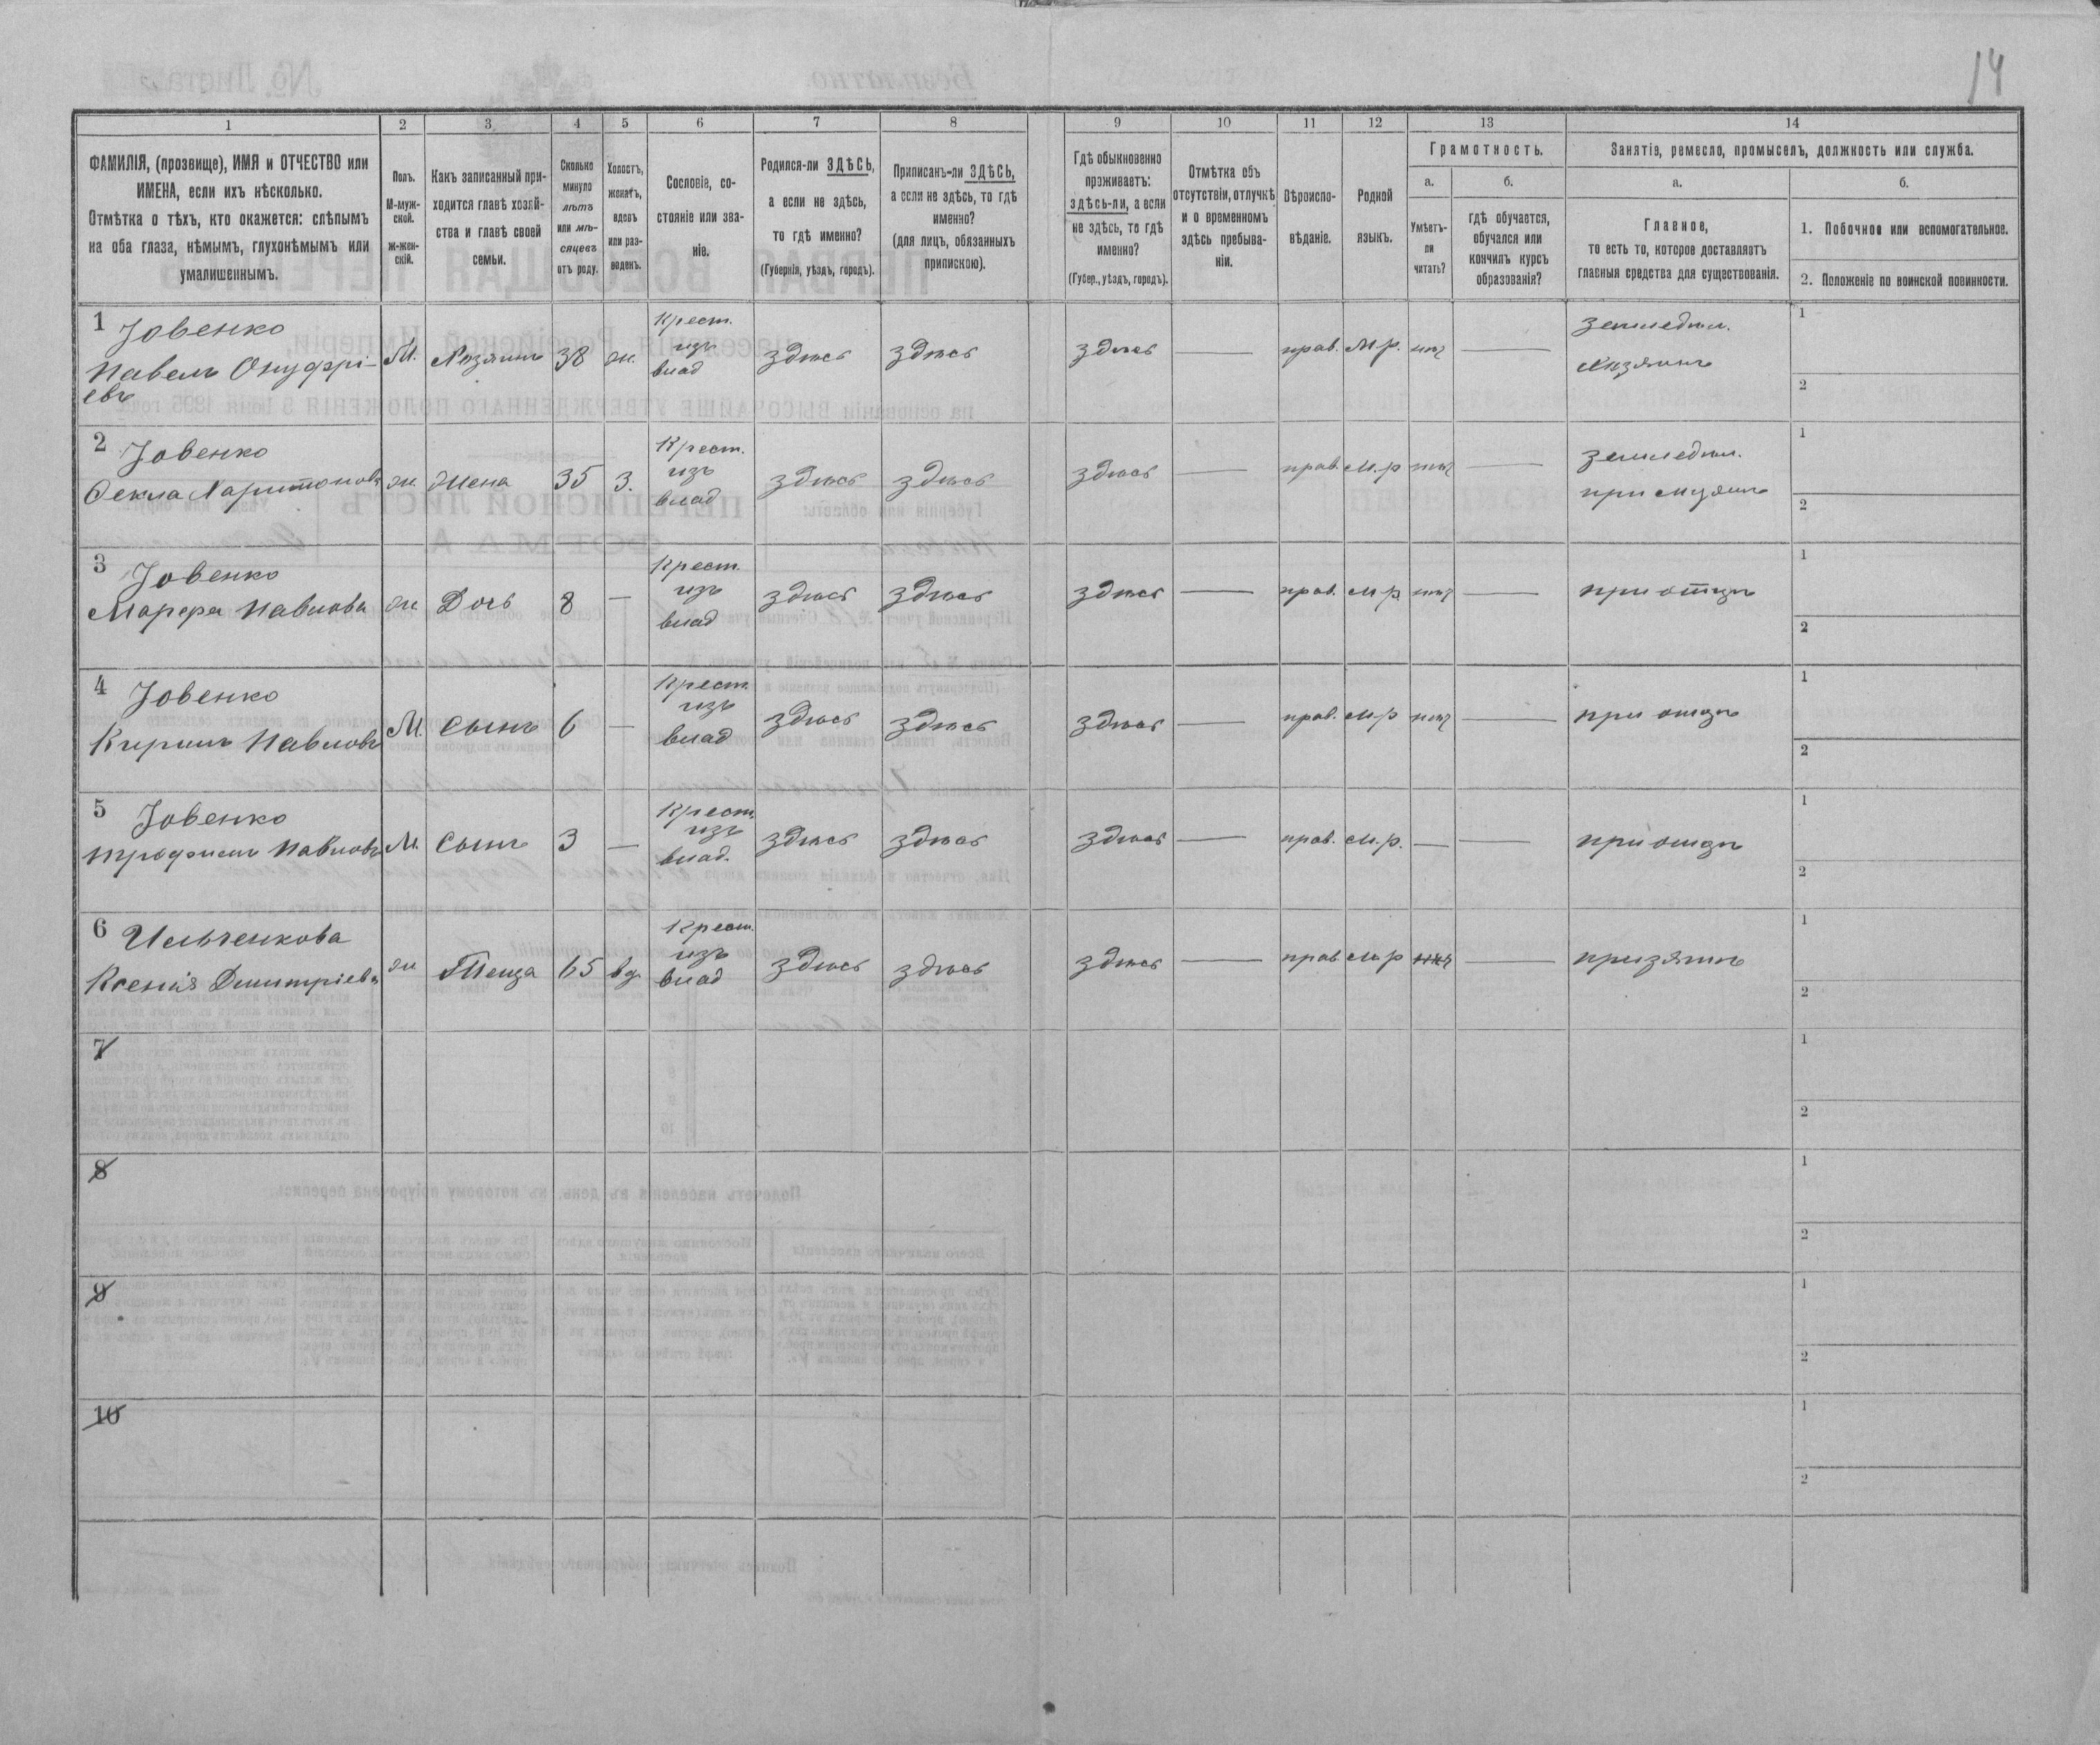 14
1 2 3 4 5 6 7 8 9 10 11 12 13 14
ФАМИЛІЯ, (прозвище), ИМЯ и ОТЧЕСТВО или
ИМЕНА, если ихъ нѣсколько.
Отмѣтка о тѣхъ, кто окажется: слѣпымъ
на оба глаза, нѣмымъ, глухонѣмымъ или
умалишеннымъ.
Полъ.
М-муж-
ской.
ж-жен-
скій.
Какъ записанный при-
ходится главѣ хозяй-
ства и главѣ своей
семьи.
Сколько
минуло
лѣтъ
или мѣ-
сяцевъ
отъ роду.
Холостъ,
женатъ,
вдовъ
или раз-
веденъ.
Сословіе, со-
стояніе или зва-
ніе.
Родился-ли ЗДѢСЬ,
а если не здѣсь,
то гдѣ именно?
(Губернія, уѣздъ, городъ).
Приписанъ-ли ЗДѢСЬ,
а если не здѣсь, то гдѣ
именно?
(для лицъ, обязанныхъ
припискою).
Гдѣ обыкновенно
проживаетъ:
здѣсь-ли, а если
не здѣсь, то гдѣ
именно?
(Губер., уѣздъ, городъ).
Отмѣтка объ
отсутствіи, отлучкѣ
и о временномъ
здѣсь пребыва-
ніи.
Вѣроиспо-
вѣданіе.
Родной
языкъ.
Грамотность.
а.
Умѣетъ-
ли
читать?
б.
гдѣ обучается,
обучался или
кончилъ курсъ
образованія?
Занятіе, ремесло, промыселъ, должность или служба.
а.
Главное,
то есть то, которое доставляетъ
главныя средства для существованія.
б.
1. Побочное или вспомогательное.
2. Положеніе по воинской повинности.
1 Іовенко
Павелъ Онуфрі-
евъ
М. Хозяинъ 38 ж.
Крест.
изъ
влад
здѣсь здѣсь здѣсь — прав. М.р. нѣт —
земледѣл.
хозяинъ
1
2
2 Іовенко
Фекла Харитонова
ж. Жена 35 З.
Крест.
изъ
влад
здѣсь здѣсь здѣсь — прав. М.р нѣт —
земледѣл.
при мужѣ
1
2
3 Іовенко
Марфа Павлова
ж Дочь 8 —
Крест.
изъ
влад
здѣсь здѣсь здѣсь — прав. М.р нѣт — при отцѣ
1
2
4 Іовенко
Кирилъ Павловъ
М. сынъ 6 —
Крест.
изъ
влад
здѣсь здѣсь здѣсь — прав. М.р нѣт — при отцѣ
1
2
5 Іовенко
Трофимъ Павловъ
М. Сынъ 3 —
Крест.
изъ
влад.
здѣсь здѣсь здѣсь — прав. М.р. — — при отцѣ
1
2
6 Ильченкова
Ксенія Дмитріева
ж Теща 65 вд.
Крест.
изъ
влад
здѣсь здѣсь здѣсь — прав М.р нѣт — при зятѣ
1
2
7
1
2
8
1
2
9
1
2
10
1
2